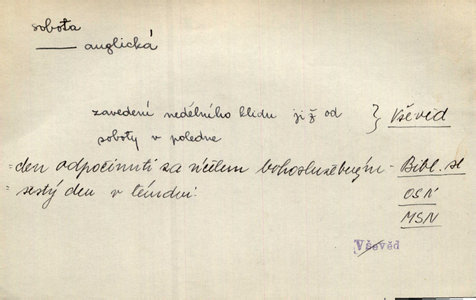 sobota
—— anglická
zavedení nedělního klidu již od } Vševěd
soboty v poledne
= den odpočinutí za účelem bohoslužebným - Bibl. sl
= šestý den v týdnu: OSN
MSN
Vševěd